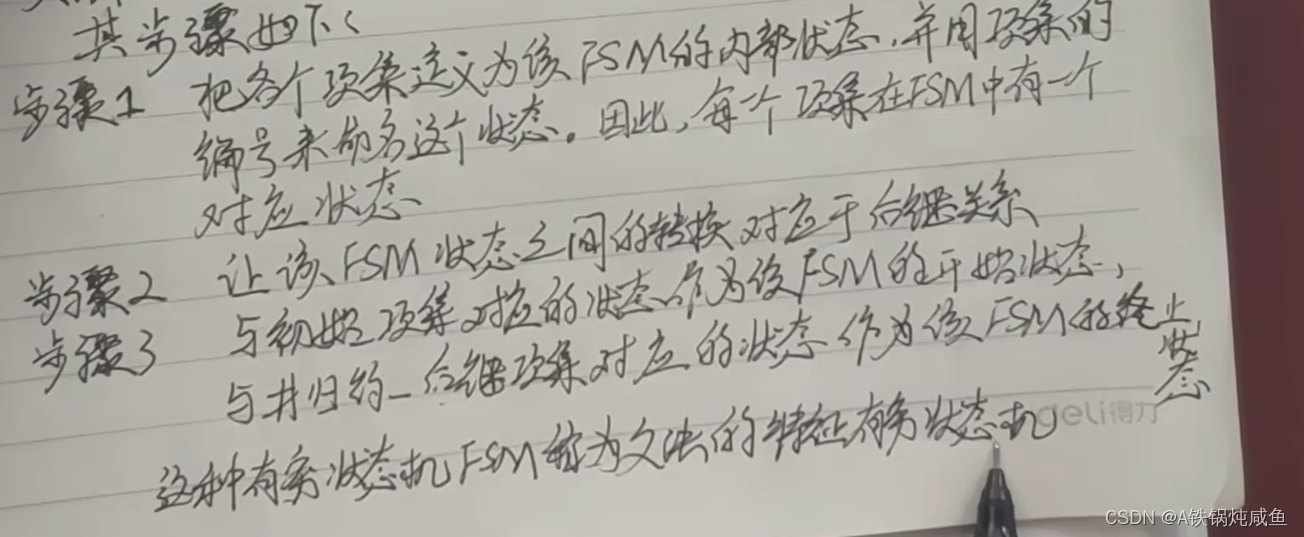 其步骤如下:
步骤1 把各个项集定义为该FSM的内部状态,并用项集的
编号来命名这个状态。因此,每一个项集在FSM中有一个
对应状态
步骤2 让该FSM状态之间的转换对应于后继关系
步骤3 与初始项集对应的状态作为该FSM的开始状态,
与#归约-后继项集对应的状态作为该FSM的终止
状态
这种有穷状态机FSM称为文法的特征有穷状态机
deli得力
CSDN @A铁锅炖咸鱼